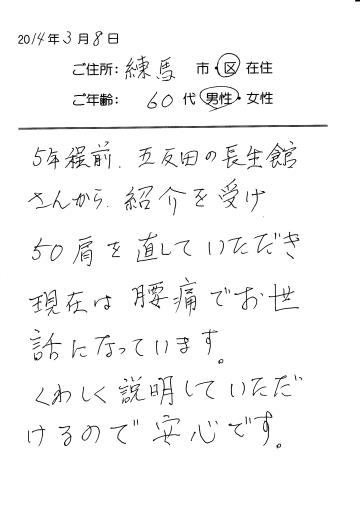 2014年3月8日
ご住所: 練馬 市・区 在住
ご年齢: 60代 男性・女性
5年程前、五反田の長生館
さんから、紹介を受け
50肩を直していただき
現在は腰痛でお世
話になっています。
くわしく説明していただ
けるので安心です。